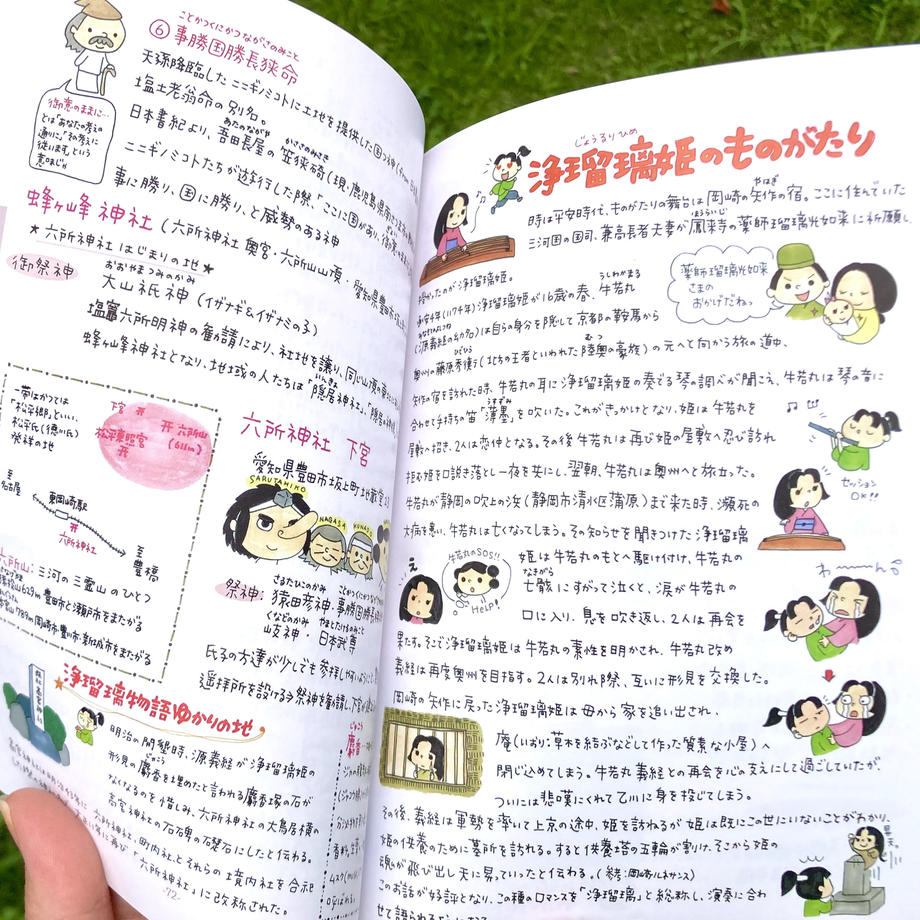 ことかつくにかつながさのみこと
⑥ 事勝国勝長狭命
天孫降臨したニニギノミコトに土地を提供した国つ神
塩土老翁命の別名。
あたのながや
かささのみさき
日本書紀より、吾田長屋の笠狭碕(現・鹿児島県南さつま
ニニギノミコトたちが辿り着いた際、「ここに国があり、御意
事に勝り、国に勝り、と威勢のある神
御意のままに…
とは「あなたの考えの
通りに」「その考えに
従います」という
意味じゃ
蜂ヶ峰神社 (六所神社 奥宮・六所山山頂・愛知県豊田市
★六所神社はじまりの地★
御祭神
おおやまつみのかみ
大山祇神 (イザナギ&イザナミの子)
塩竈六所明神の勧請により、社地を譲り、同じ山頂の
蜂ヶ峰神社となり、地域の人たちは「隠居神社」
いんきょ
一帯はかつては
「松平郷」といい、
松平氏(徳川氏)
発祥の地
下宮
六所山
(611m)
松平東照宮
至
名古屋
東岡崎駅
六所神社
至
豊橋
六所山:三河の三霊山のひとつ
629m 豊田市と瀬戸市をまたがる
789m 岡崎市、豊川市、新城市をまたがる
六所神社 下宮
愛知県豊田市坂上町地蔵堂
SARUTAHIKO
NAGASA
KUNADO
祭神:
さるたひこのかみ
猿田彦神・事勝国勝長
くなどのかみ
やまとたけるのみこと
岐神・日本武尊
氏子の方達が少しでも参拝し
遥拝所を設ける。祭神を勧請し、下宮が
浄瑠璃物語ゆかりの地
明治の開墾時、源義経が浄瑠璃姫の
じゃこう
形見の麝香を埋めたと言われる麝香塚の石が
なくなるのを惜しみ、六所神社の大鳥居横の
高宮神社の石碑の石礎石にしたと伝わる。
六所神社、町内社とそれらの境内社を合祀
「六所神社」に改称された。
じゃこう
麝香
72
じょうるりひめ
浄瑠璃姫のものがたり
やはぎ
時は平安時代、ものがたりの舞台は岡崎の矢作の宿。ここに住んでいた
ほうらいじ
三河国の国司、兼高長者夫妻が鳳来寺の薬師瑠璃光如来に祈願し、
授かったのが浄瑠璃姫。
薬師瑠璃光如来
さまの
おかげだねっ
うしわかまる
承安4年(1174年)浄瑠璃姫が16歳の春、牛若丸
みなもとのよしつね
(源義経の幼名)は自らの身分を隠して京都の鞍馬から
ひでひら
むつ
奥州の藤原秀衡(北方の王者といわれた陸奥の豪族)の元へと向かう旅の道中、
矢作の宿を訪れた時、牛若丸の耳に浄瑠璃姫の奏でる琴の調べが聞こえ、牛若丸は琴の音に
うすずみ
合わせて手持ちの笛「薄墨」を吹いた。これがきっかけとなり、姫は牛若丸を
屋敷へ招き、2人は恋仲となる。その後牛若丸は再び姫の屋敷へ忍び訪れ
拒む姫を口説き落とし一夜を共にし、翌朝、牛若丸は奥州へと旅立った。
牛若丸が静岡の吹上の浜(静岡市清水区蒲原)まで来た時、瀕死の
大病を患い、牛若丸は亡くなってしまう。その知らせを聞きつけた浄瑠璃
セッション
OK!!
え
牛若丸のSOS!!
Help!
姫は牛若丸のもとへ駆け付け、牛若丸の
なきがら
亡骸にすがって泣くと、涙が牛若丸の
口に入り、息を吹き返し、2人は再会を
果たす。そこで浄瑠璃姫は牛若丸の素性を明かされ、牛若丸改め
義経は再度奥州を目指す。2人は別れ際、互いに形見を交換した。
岡崎の矢作に戻った浄瑠璃姫は母から家を追い出され、
庵(いおり:草木を結ぶなどして作った質素な小屋)へ
閉じ込めてしまう。牛若丸義経との再会を心の支えにして過ごしていたが、
ついには悲嘆にくれて乙川に身を投じてしまう。
その後、義経は軍勢を率いて上京の途中、姫を訪ねるが姫は既にこの世にいないことがわかり、
姫の供養のために墓所を訪れる。すると供養塔の五輪が割け、そこから姫の
魂が飛び出し天に昇っていったと伝わる。(参考:岡崎ルネサンス)
このお話が好評となり、この種のロマンスを「浄瑠璃」と総称し、演奏に合わ
せて語られる